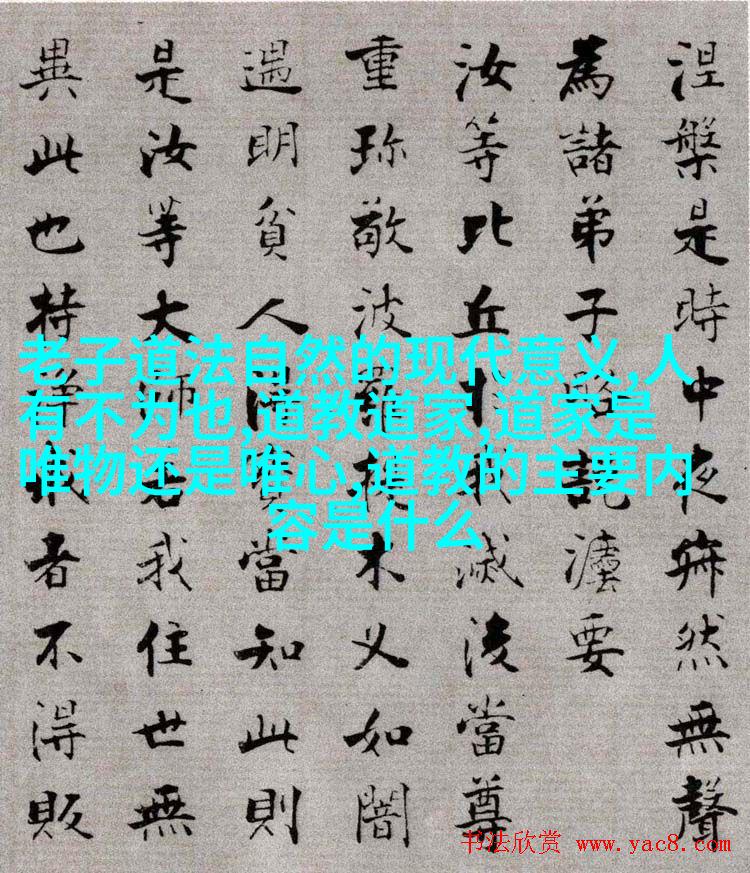 涅槃是時中夜寂然無聲
為諸弟子略說灋要
汝等比丘於我滅後當尊
重珎敬波羅提木叉如闇
遇明貧人得寶當知此則
是汝等大師若我住世無
異此也持淨戒者不得販
老子道法自然的现代意义,人
有不为也,道教道家,道家是
唯物还是唯心,道教的主要内
容是什么
书法欣赏 www.yac8.com